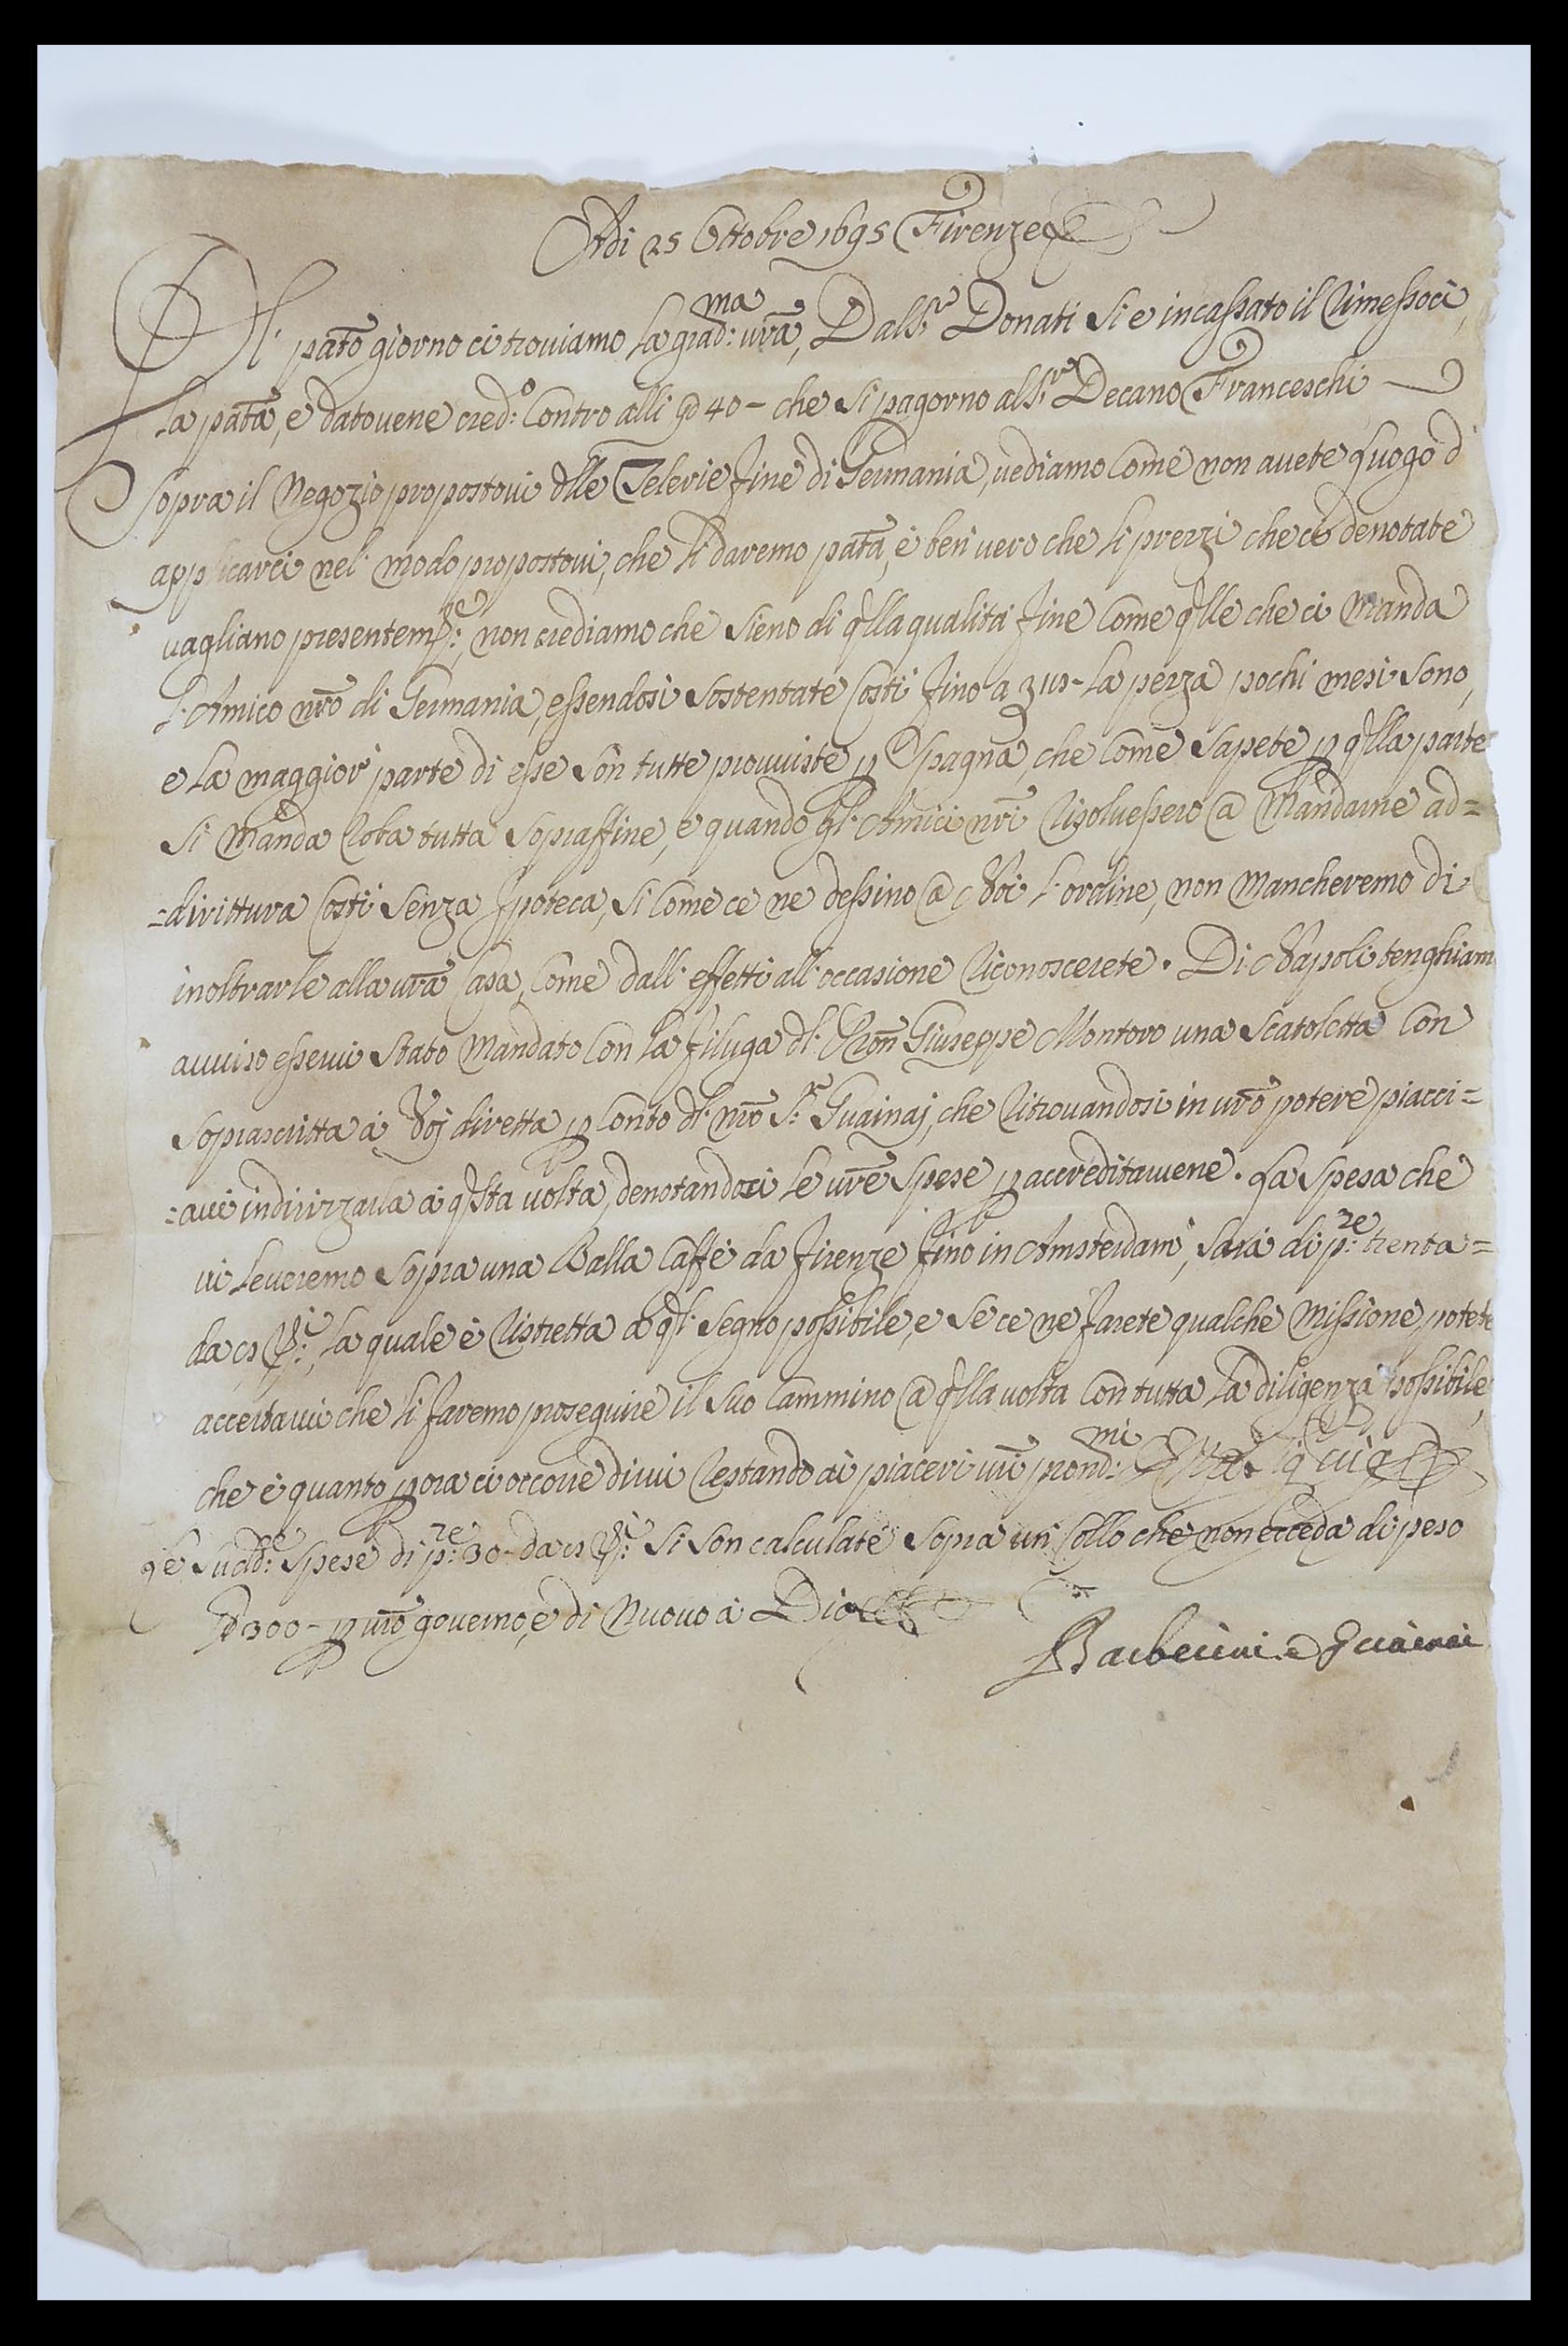 Adi 25 Ottobre 1695 Firenze
Al' pat̃o giorno ci trouiamo la grad:ma vr̃a, Dall Sr Donati si e incassato il rimessoci,
la pat̃a, e datouene cred:o Contro alli 40 - che si pagorno al Sr Decano Franceschi
Sopra il Negozio propostoui d̃lle Telerie fine di Germania, uediamo Come non auete Luogo d'
applicarci nel' modo propostoui, che li daremo pat̃a, è ben' uero che li prezzi che ci denotate
uagliano presentem:te, non crediamo che sieno di q̃lla qualità fine Come q̃lle che ci Manda
l'Amico nr̃o di Germania, essendosi Sostentate Costì fino a la pezza pochi mesi Sono,
e la maggior' parte di esse Son tutte prouuiste p Spagna, che Come Sapete p q̃lla parte
Si Manda Roba tutta Sopraffine, e quando gl' Amici nr̃i Risoluessero @ Mandarne ad=
=dirittura Costì Senza Ipoteca, si Come ce ne dessino @ Noi l'ordine, non Mancheremo di
inoltrarle alla ur̃a Casa, Come dall' effetti all' occasione Riconoscerete. Di Napoli tenghiam
auuiso esserui Stato Mandato Con la filuga dl' Pron̄ Giuseppe Montoro una Scatoletta Con
Soprascritta à Voj diretta p Conto dl' nr̃o Sr Guainaj, che Ritrouandosi in ur̃o potere piacci=
=aui indirizzarla à q̃sta uolta, denotandoci le ur̃e Spese p accreditaruene. La Spesa che
ui leueremo Sopra una Balla Caffè da firenze fino in Amsterdam', Sarà di p:ze trenta=
da la quale è Ristretta a q̃l' Segno possibile, e Se ce ne farete qualche Missione, potete
accertarui che li faremo proseguire il Suo Cammino @ q̃lla uolta Con tutta la diligenza possibile,
che è quanto p ora ci occorre dirui Restando ai piaceri ur̃i prond:mi
Le sudd:e Spese di p:ze 30 - da Si Son calculate Sopra un' Collo che non ecceda di peso
300 - p ur̃o gouerno, e di Nuouo à Dio
Barberini e Guainai